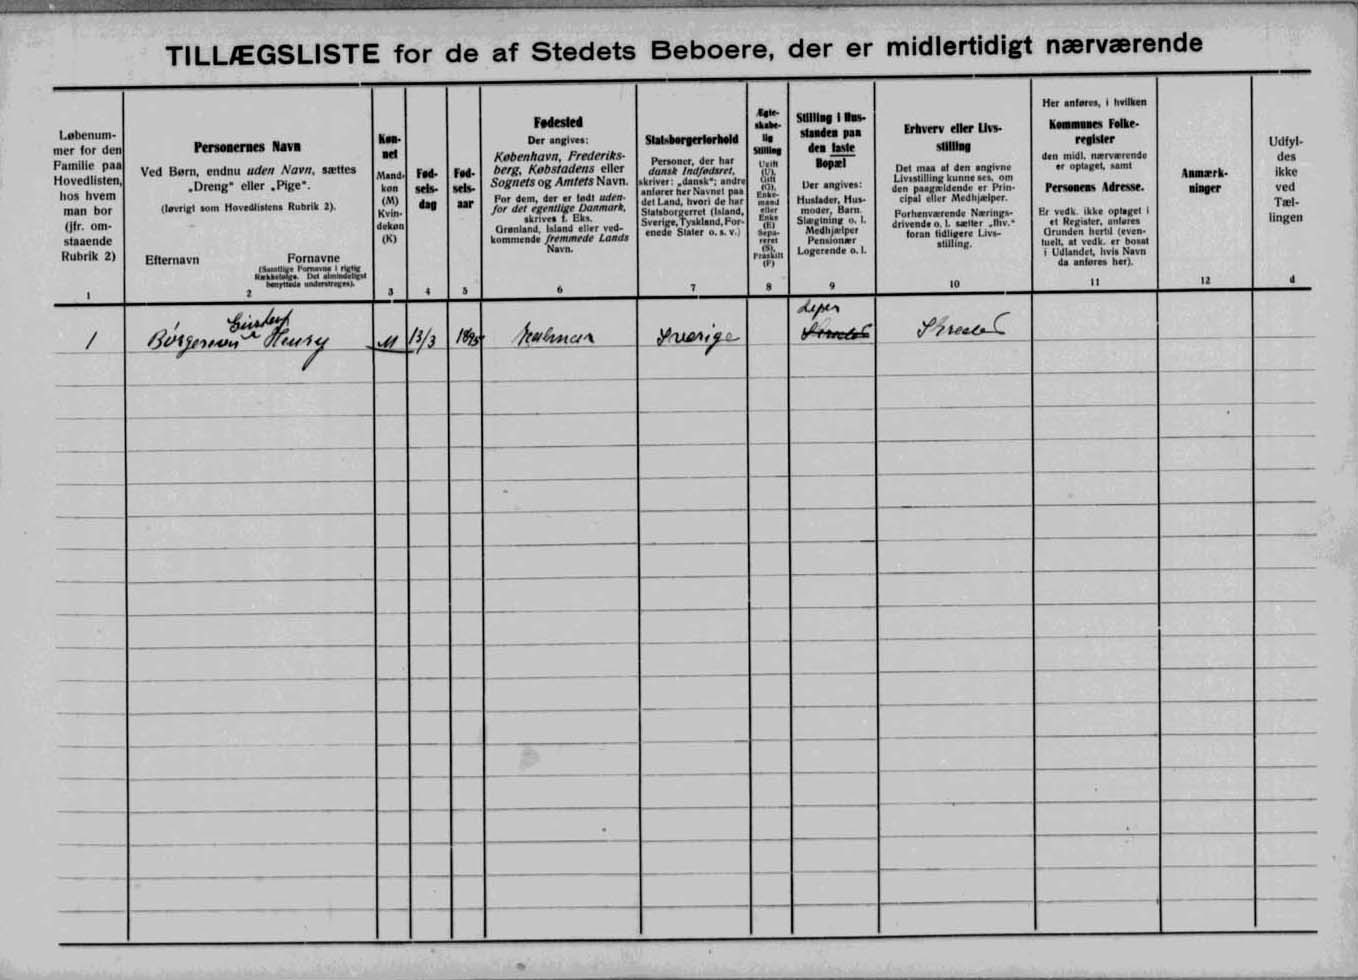 TILLÆGSLISTE for de af Stedets Beboere, der er midlertidigt nærværende
Løbenum-
mer for den
Familie paa
Hovedlisten,
hos hvem
man bor
(jfr. om-
staaende
Rubrik 2)
1
Personernes Navn
Ved Børn, endnu uden Navn, sættes
„Dreng“ eller „Pige“.
(Iøvrigt som Hovedlistens Rubrik 2).
Efternavn Fornavne
(Samtlige Fornavne i rigtig
Rækkefølge. Det almindeligst
benyttede understreges).
2
Køn-
net
Mand-
køn
(M)
Kvin-
dekøn
(K)
3
Fød-
sels-
dag
4
Fød-
sels-
aar
5
Fødested
Der angives:
København, Frederiks-
berg, Købstadens eller
Sognets og Amtets Navn.
For dem, der er født uden-
for det egentlige Danmark,
skrives f. Eks.
Grønland, Island eller ved-
kommende fremmede Lands
Navn.
6
Statsborgerforhold
Personer, der har
dansk Indfødsret,
skriver: „dansk“; andre
anfører her Navnet paa
det Land, hvori de har
Statsborgerret (Island,
Sverige, Tyskland, For-
enede Stater o. s. v.)
7
Ægte-
skabe-
lig
Stilling
Ugift
(U),
Gift
(G),
Enke-
mand
eller
Enke
(E)
Sepa-
reret
(S),
Fraskilt
(F)
8
Stilling i Hus-
standen paa
den faste
Bopæl
Der angives:
Husfader, Hus-
moder, Barn,
Slægtning o. l.
Medhjælper
Pensionær
Logerende o. l.
9
Erhverv eller Livs-
stilling
Det maa af den angivne
Livsstilling kunne ses, om
den paagældende er Prin-
cipal eller Medhjælper.
Forhenværende Nærings-
drivende o. l. sætter „fhv.“
foran tidligere Livs-
stilling.
10
Her anføres, i hvilken
Kommunes Folke-
register
den midl. nærværende
er optaget, samt
Personens Adresse.
Er vedk. ikke optaget i
et Register, anføres
Grunden hertil (even-
tuelt, at vedk. er bosat
i Udlandet, hvis Navn
da anføres her).
11
Anmærk-
ninger
12
Udfyl-
des
ikke
ved
Tæl-
lingen
d
1 Henry M 13/3 1895 Sverige